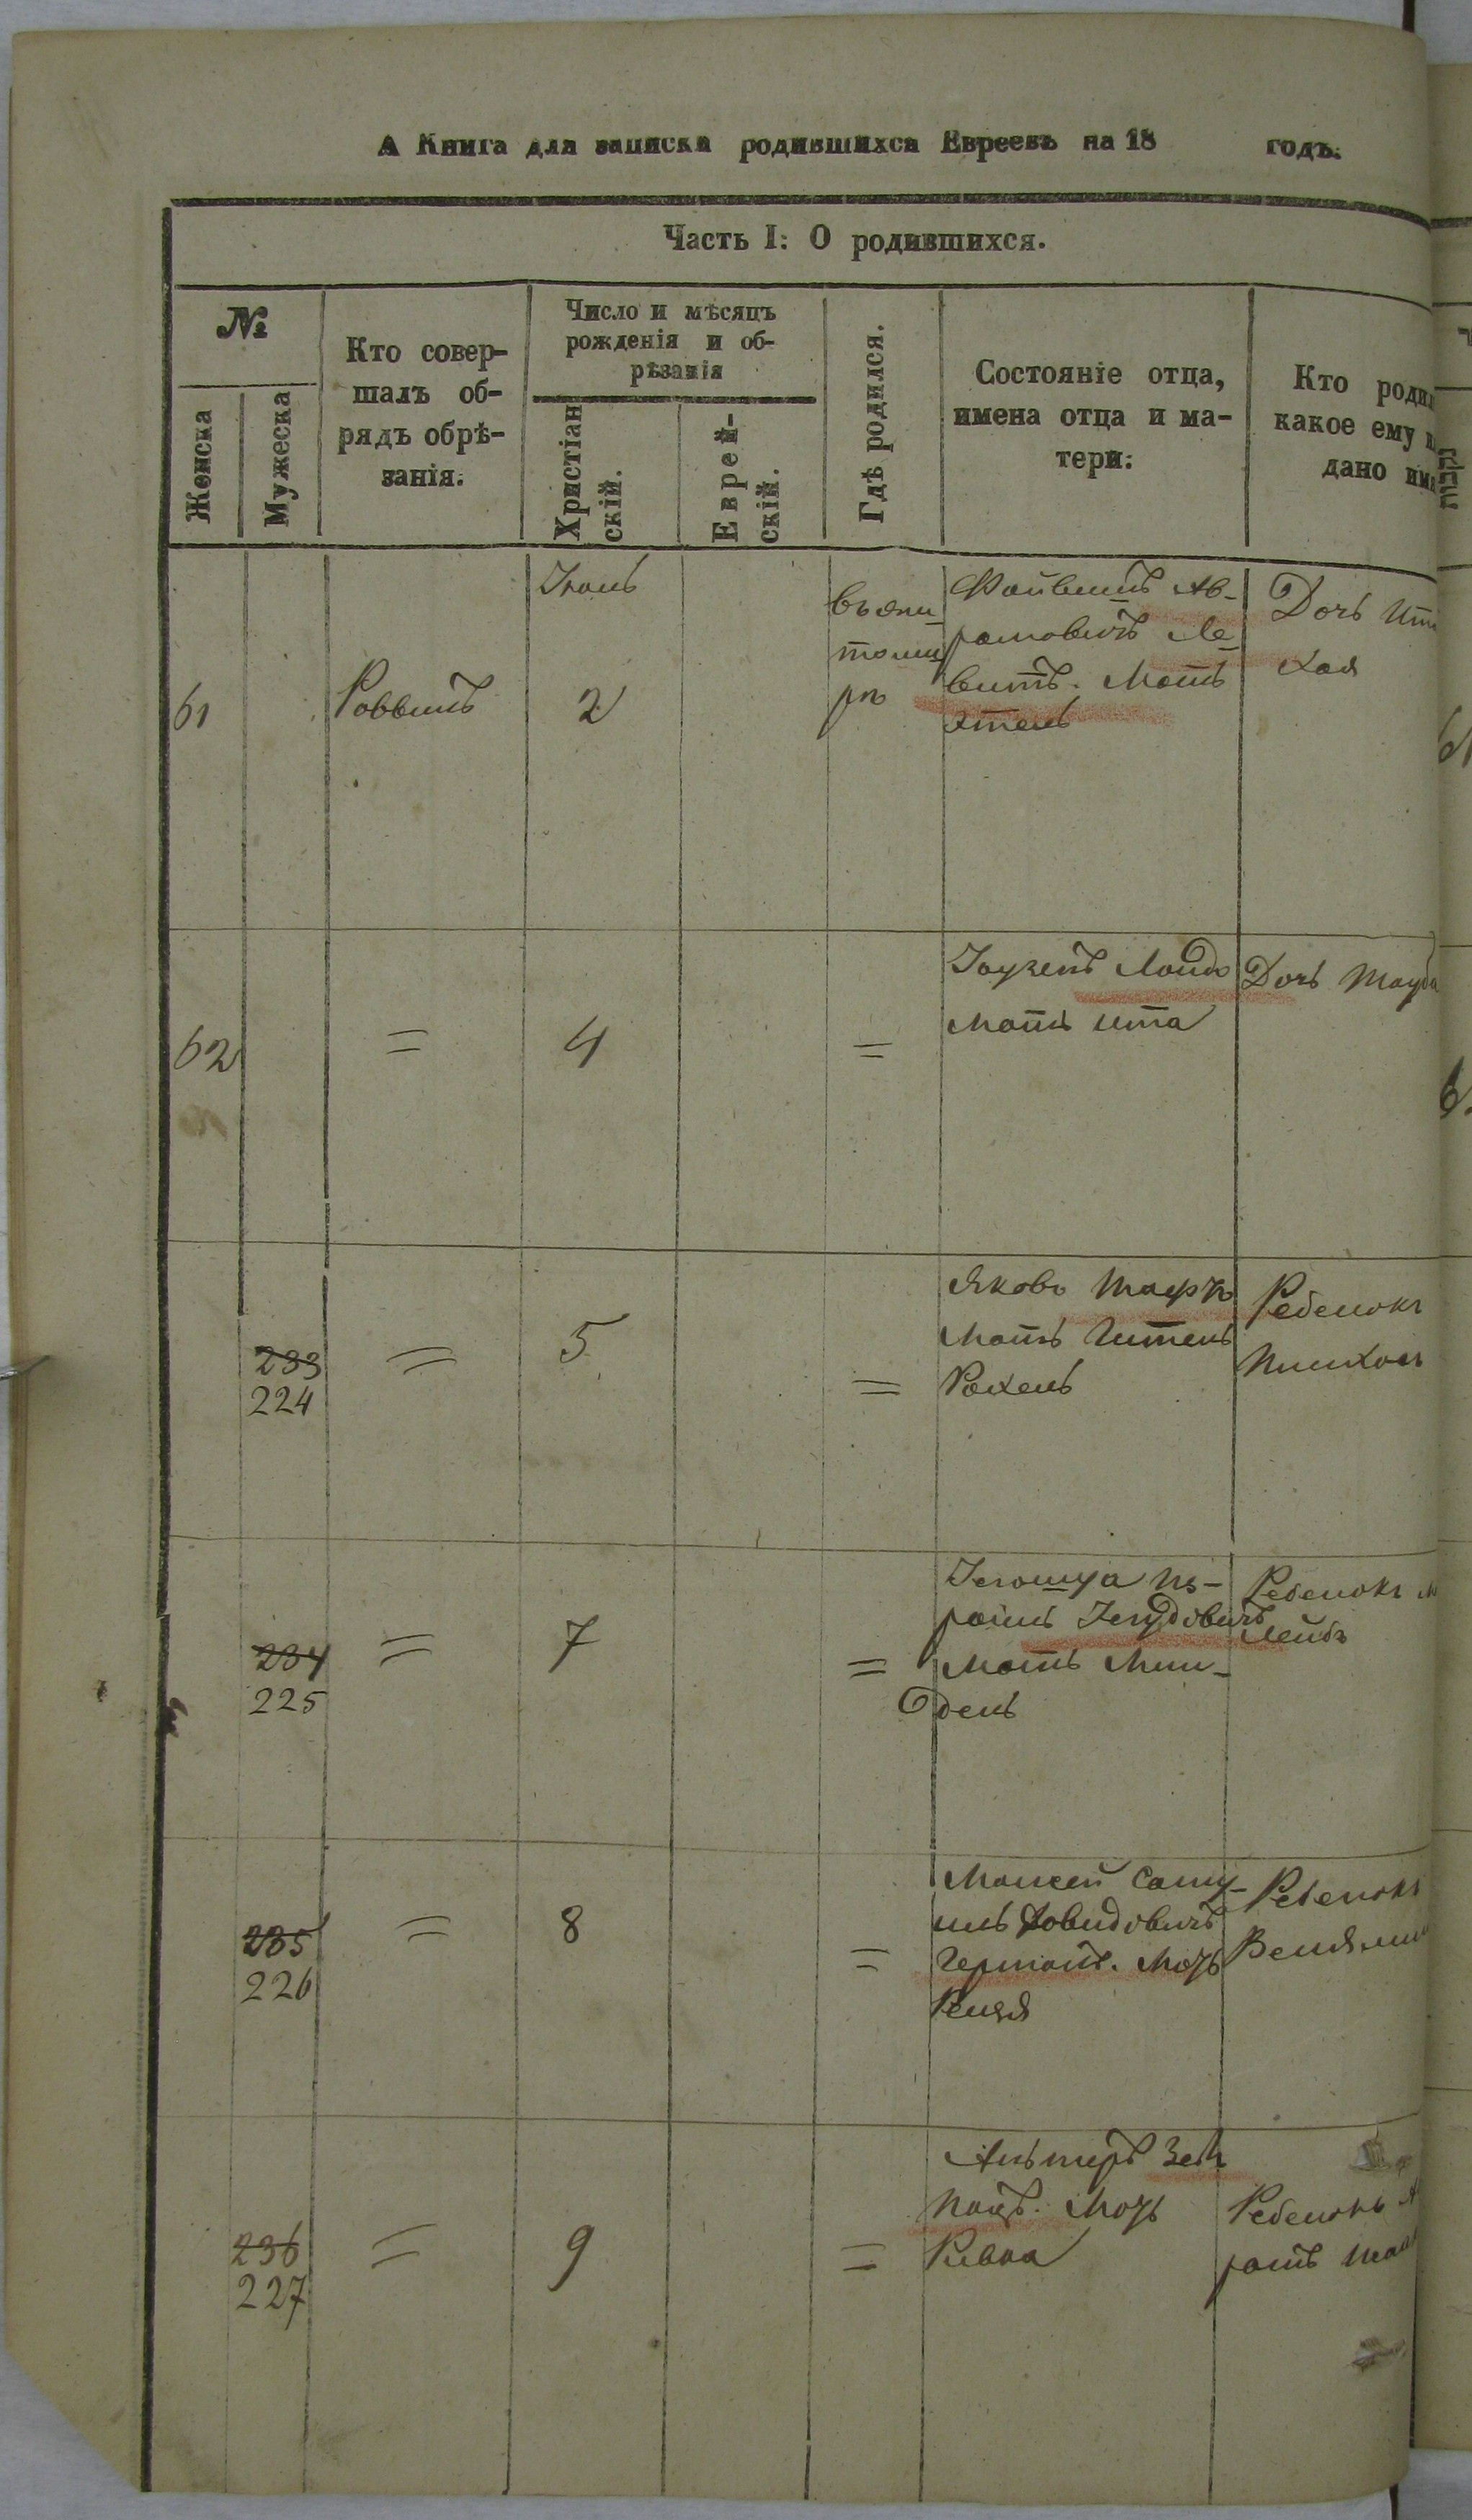 А Книга для записки родившихся Евреевъ на 18 годъ.
Часть I: О родившихся.
№
Женска
Мужеска
Кто совер-
шалъ об-
рядъ обрѣ-
занія:
Число и мѣсяцъ
рожденія и об-
рѣзанія
Христіан
скій.
Еврей-
скій.
Гдѣ родился.
Состояніе отца,
имена отца и ма-
тери:
Кто роди
какое ему
дано им
61
Раввинъ
2
въ жи-
томи
рѣ
Файвишъ Аб-
рамовичъ Ле-
витъ. Мать
Этель
Дочь Ит
Хая
62
=
4
=
Мать Ита
Дочь Тауба
233
224
=
5
=
Яковъ
Мать Гитель
Рахель
Ребенокъ
Пинхасъ
234
225
=
7
=
Іегошуа Из-
раиль Іегудовичъ
Мать Мин-
дель
Ребенокъ М
Лейбъ
235
226
=
8
=
Моисей Саму-
иль Давидовичъ
Германъ. Мать
Ребенокъ
Веніямин
236
227
=
9
=
Мать
Ривка
Ребенокъ А